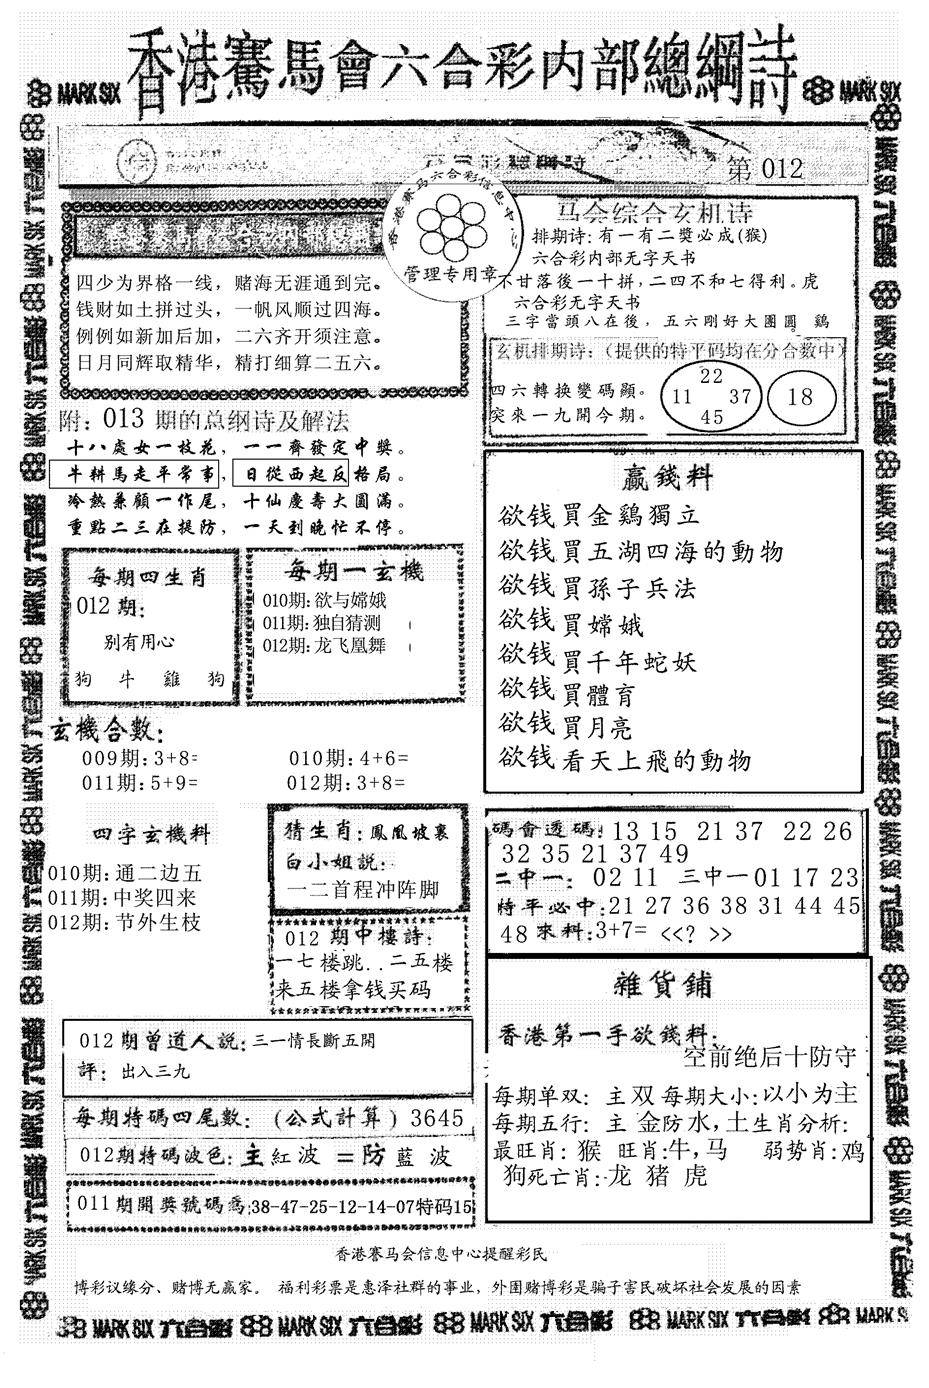 香港賽馬會六合彩内部總綱詩
MARK SIX
MARK SIX
第 012
香港赛马六合彩信息中
管理专用章
四少为界格一线，赌海无涯通到完。
钱财如土拼过头，一帆风顺过四海。
例例如新加后加，二六齐开须注意。
日月同辉取精华，精打细算二五六。
马会综合玄机诗
排期诗:有一有二獎必成(猴)
六合彩内部无字天书
不甘落後一十拼,二四不和七得利。虎
六合彩无字天书
三字當頭八在後，五六剛好大團圓 鷄
玄机排期诗:（提供的特平码均在分合数中）
四六轉换變碼顯。
突來一九開今期。
22
11 37
45
18
附: 013 期的总纲诗及解法
十八處女一枝花，一一齊發定中獎。
牛耕馬走平常事，日從西起反格局。
冷熱兼顧一作尾，十仙慶壽大圓滿。
重點二三在提防，一天到晚忙不停。
每期四生肖
012期:
别有用心
狗 牛 雞 狗
每期一玄機
010期:欲与嫦娥
011期:独自猜测
012期:龙飞凰舞
赢錢料
欲钱買金鷄獨立
欲钱買五湖四海的動物
欲钱買孫子兵法
欲钱買嫦娥
欲钱買千年蛇妖
欲钱買體育
欲钱買月亮
欲钱看天上飛的動物
玄機合數:
009期:3+8= 010期:4+6=
011期:5+9= 012期:3+8=
四字玄機料
010期:通二边五
011期:中奖四来
012期:节外生枝
猜生肖:鳳凰坡裏
白小姐説:
一二首程冲阵脚
012 期中樓詩:
一七楼跳..二五楼
来五楼拿钱买码
碼會透碼:13 15 21 37 22 26
32 35 21 37 49
二中一: 02 11 三中一01 17 23
特平必中:21 27 36 38 31 44 45
48 來料:3+7= <<? >>
雜貨鋪
香港第一手欲錢料:
空前绝后十防守
每期单双: 主双 每期大小:以小为主
每期五行: 主 金防水,土生肖分析:
最旺肖: 猴 旺肖:牛,马 弱势肖:鸡
狗死亡肖:龙 猪 虎
012期曾道人説:三一情長斷五閞
評: 出入三九
每期特碼四尾數: (公式計算) 3645
012期特碼波色:主紅波 =防藍 波
011期開獎號碼爲:38-47-25-12-14-07特码15
香港赛马会信息中心提醒彩民
博彩议缘分、赌博无赢家。 福利彩票是惠泽社群的事业，外围赌博彩是骗子害民破坏社会发展的因素
MARK SIX 六合彩 MARK SIX 六合彩 MARK SIX 六合彩 MARK SIX 六合彩 MARK SIX